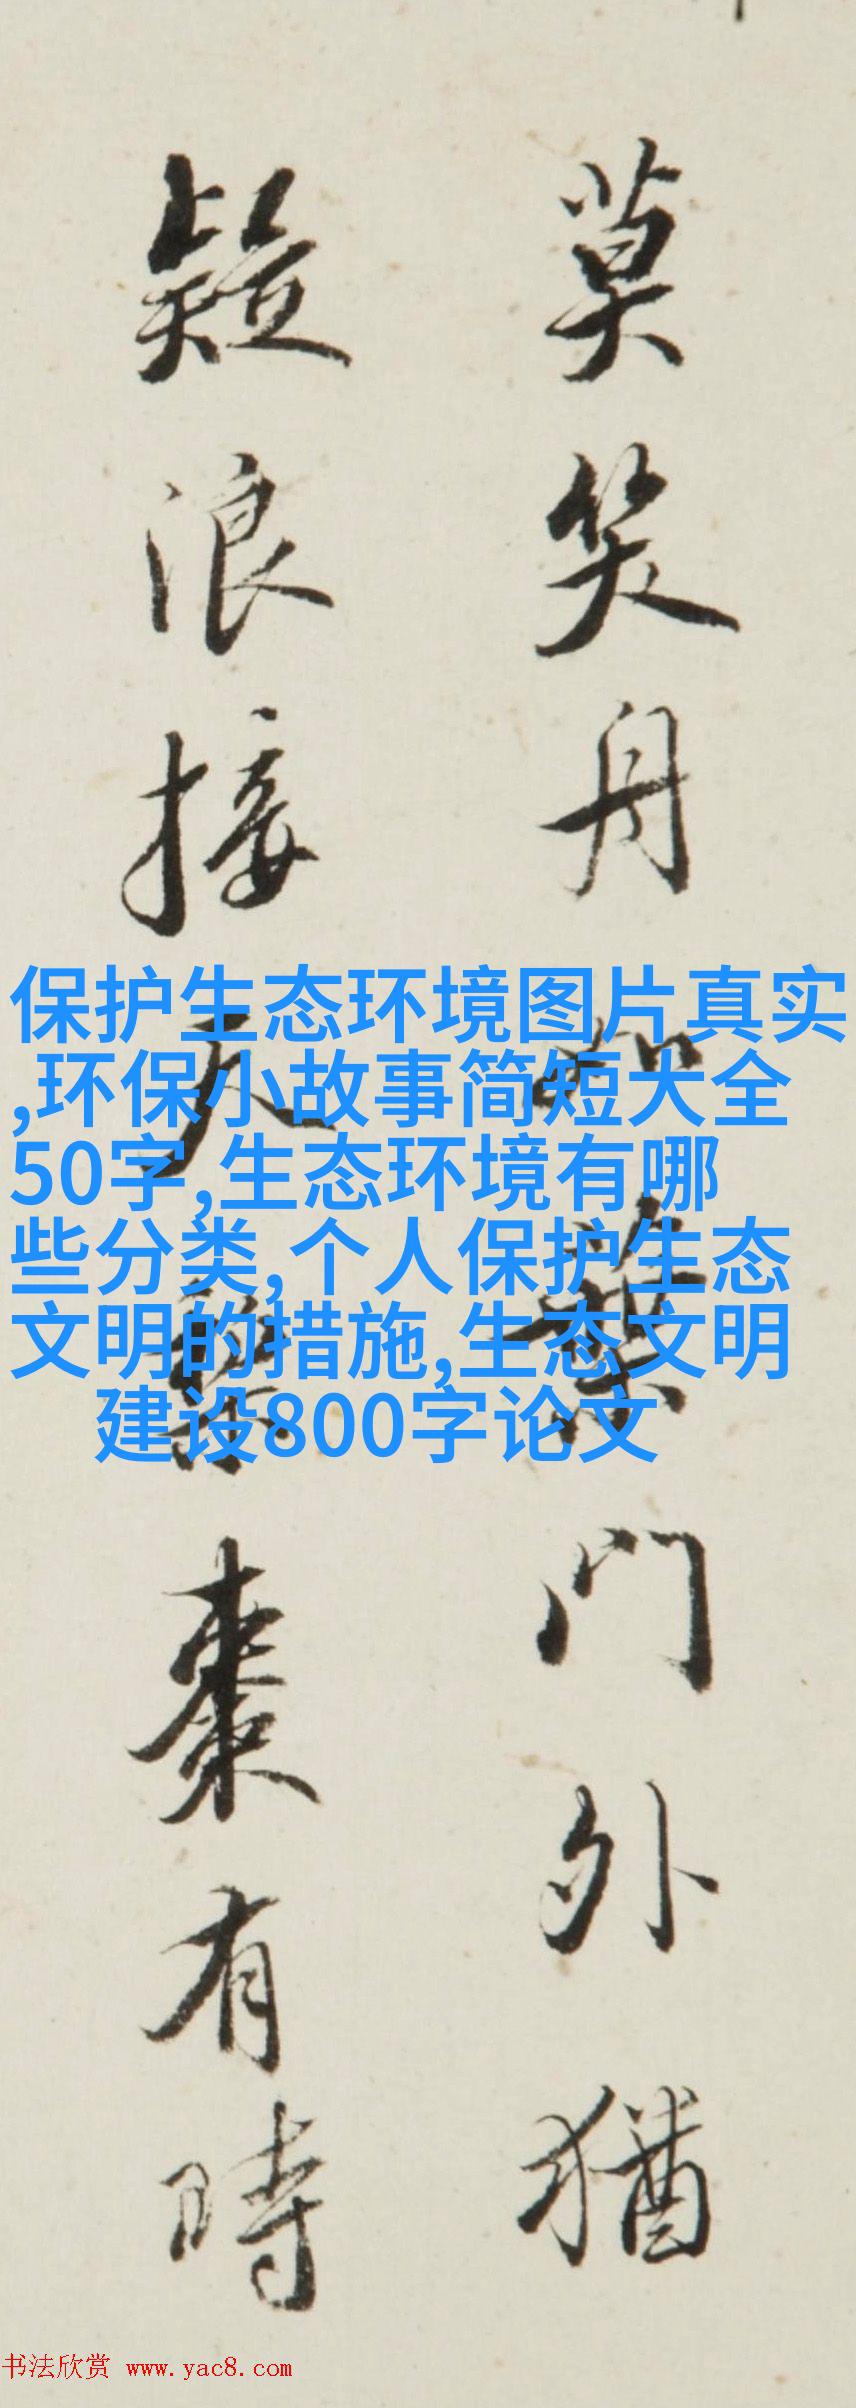 莫笑舟如葉門外猶
疑浪接天
棗有時
保护生态环境图片真实
,环保小故事简短大全
50字,生态环境有哪
些分类,个人保护生态
文明的措施,生态文明
建设800字论文
书法欣赏 www.yac8.com